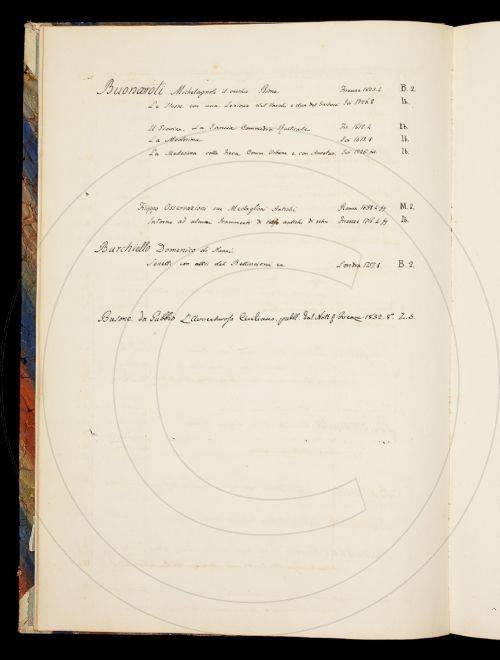 Buonaroti Michelagnolo il vecchio Rime Firenze 1623.4 B. 2.
Le Stesse con una Lezione del Varchi e due del Guiducci Ivi 1726.8 Ib.
Il Giovine, La Tancia Commedia Rusticale Fir. 1612.4 Ib.
La Medesima Ivi 1638.8 Ib.
La Medesima colla Fiera Comm. Urbana e con Annotaz. Ivi 1726.fo. Ib.
Filippo Osservazioni su Medaglioni Antichi Roma 1698.4 fig M. 2.
Intorno ad alcuni frammenti di vasi antichi di vetro Firenze 1716.4 fig Ib.
Burchiello Domenico di Nanni
Sonetti con altri del Bellincioni ec Londra 1757.8 B. 2.
Busone da Gubbio L'Avventuroso Ciciliano, pubbl. dal Nott. Firenze 1832. 8°. Z. 5.